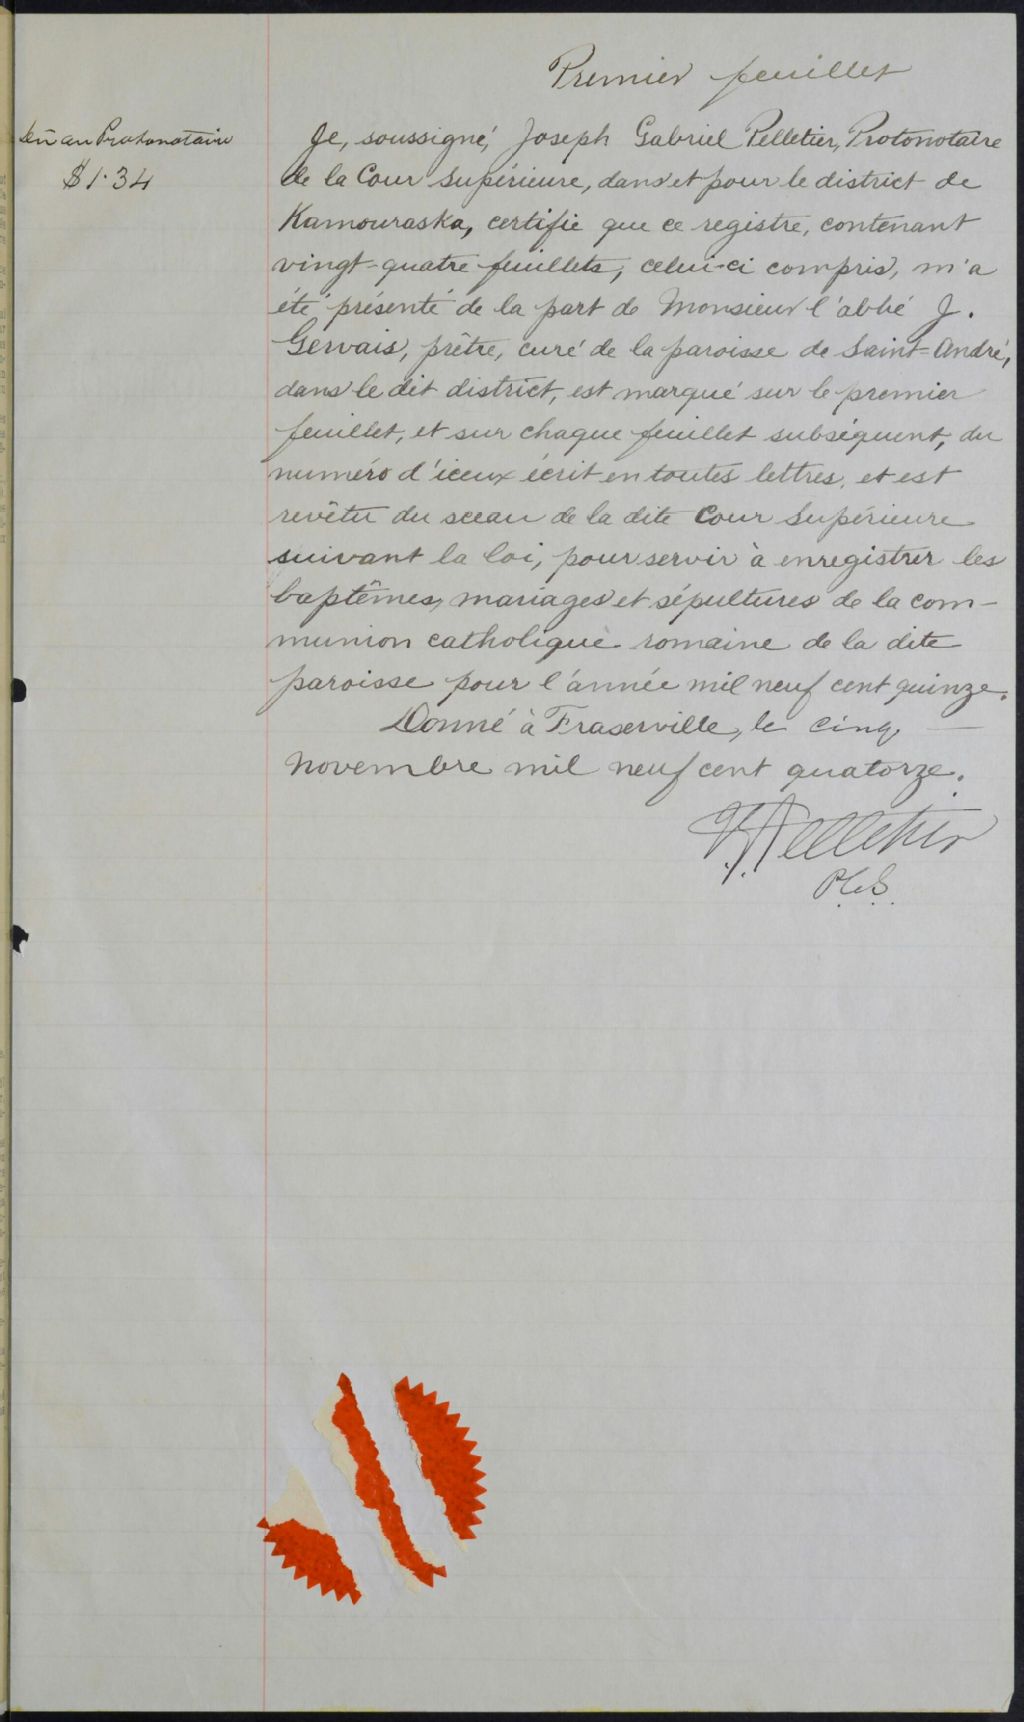 Premier feuillet
au Protonotaire
$1.34
Je, soussigné, Joseph Gabriel Pelletier, Protonotaire
de la Cour Supérieure, dans et pour le district de
Kamouraska, certifie que ce registre, contenant
vingt-quatre feuillets, celui-ci compris, m'a
été présenté de la part de Monsieur l'abbé J.
Gervais, prêtre, curé de la paroisse de Saint-André,
dans le dit district, est marqué sur le premier
feuillet, et sur chaque feuillet subséquent, du
numéro d'iceux écrit en toutes lettres, et est
revêtu du sceau de la dite Cour Supérieure
suivant la loi, pour servir à enregistrer les
baptêmes, mariages et sépultures de la com-
munion catholique romaine de la dite
paroisse pour l'année mil neuf cent quinze.
Donné à Fraserville, le cinq
novembre mil neuf cent quatorze.
Pelletier
P.C.S.